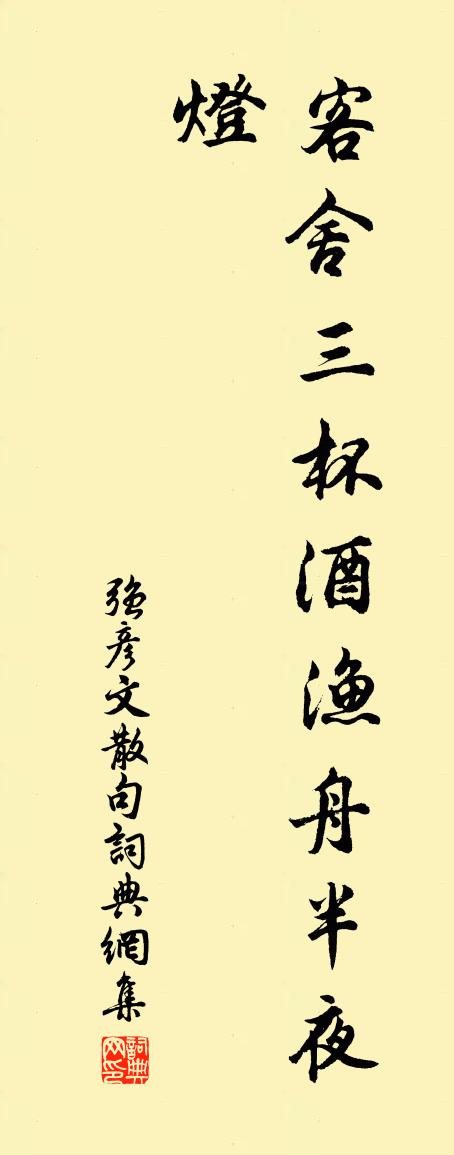 客舍三杯酒漁舟半夜
燈
強彦文散句詞典網集
詞典
网印